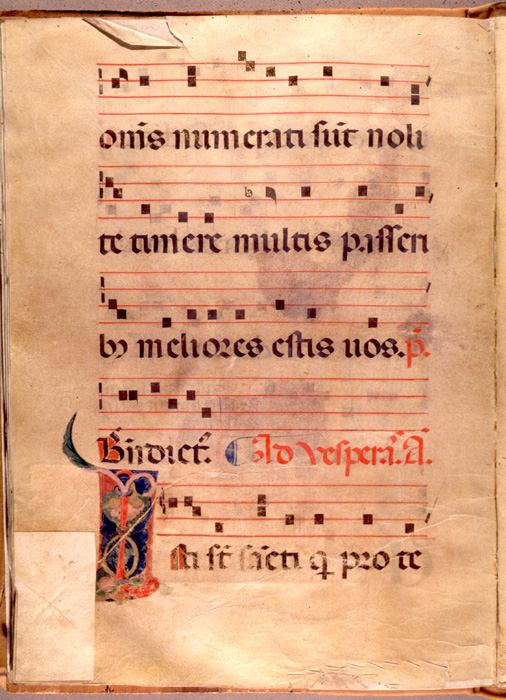 om̄s numerati sūt noli
te timere multis passeri
bꝫ meliores estis uos. p̄.
Bn̄dict᷒. ¶ Ad vesperas. A.
Isti st̄ sācti q pro te